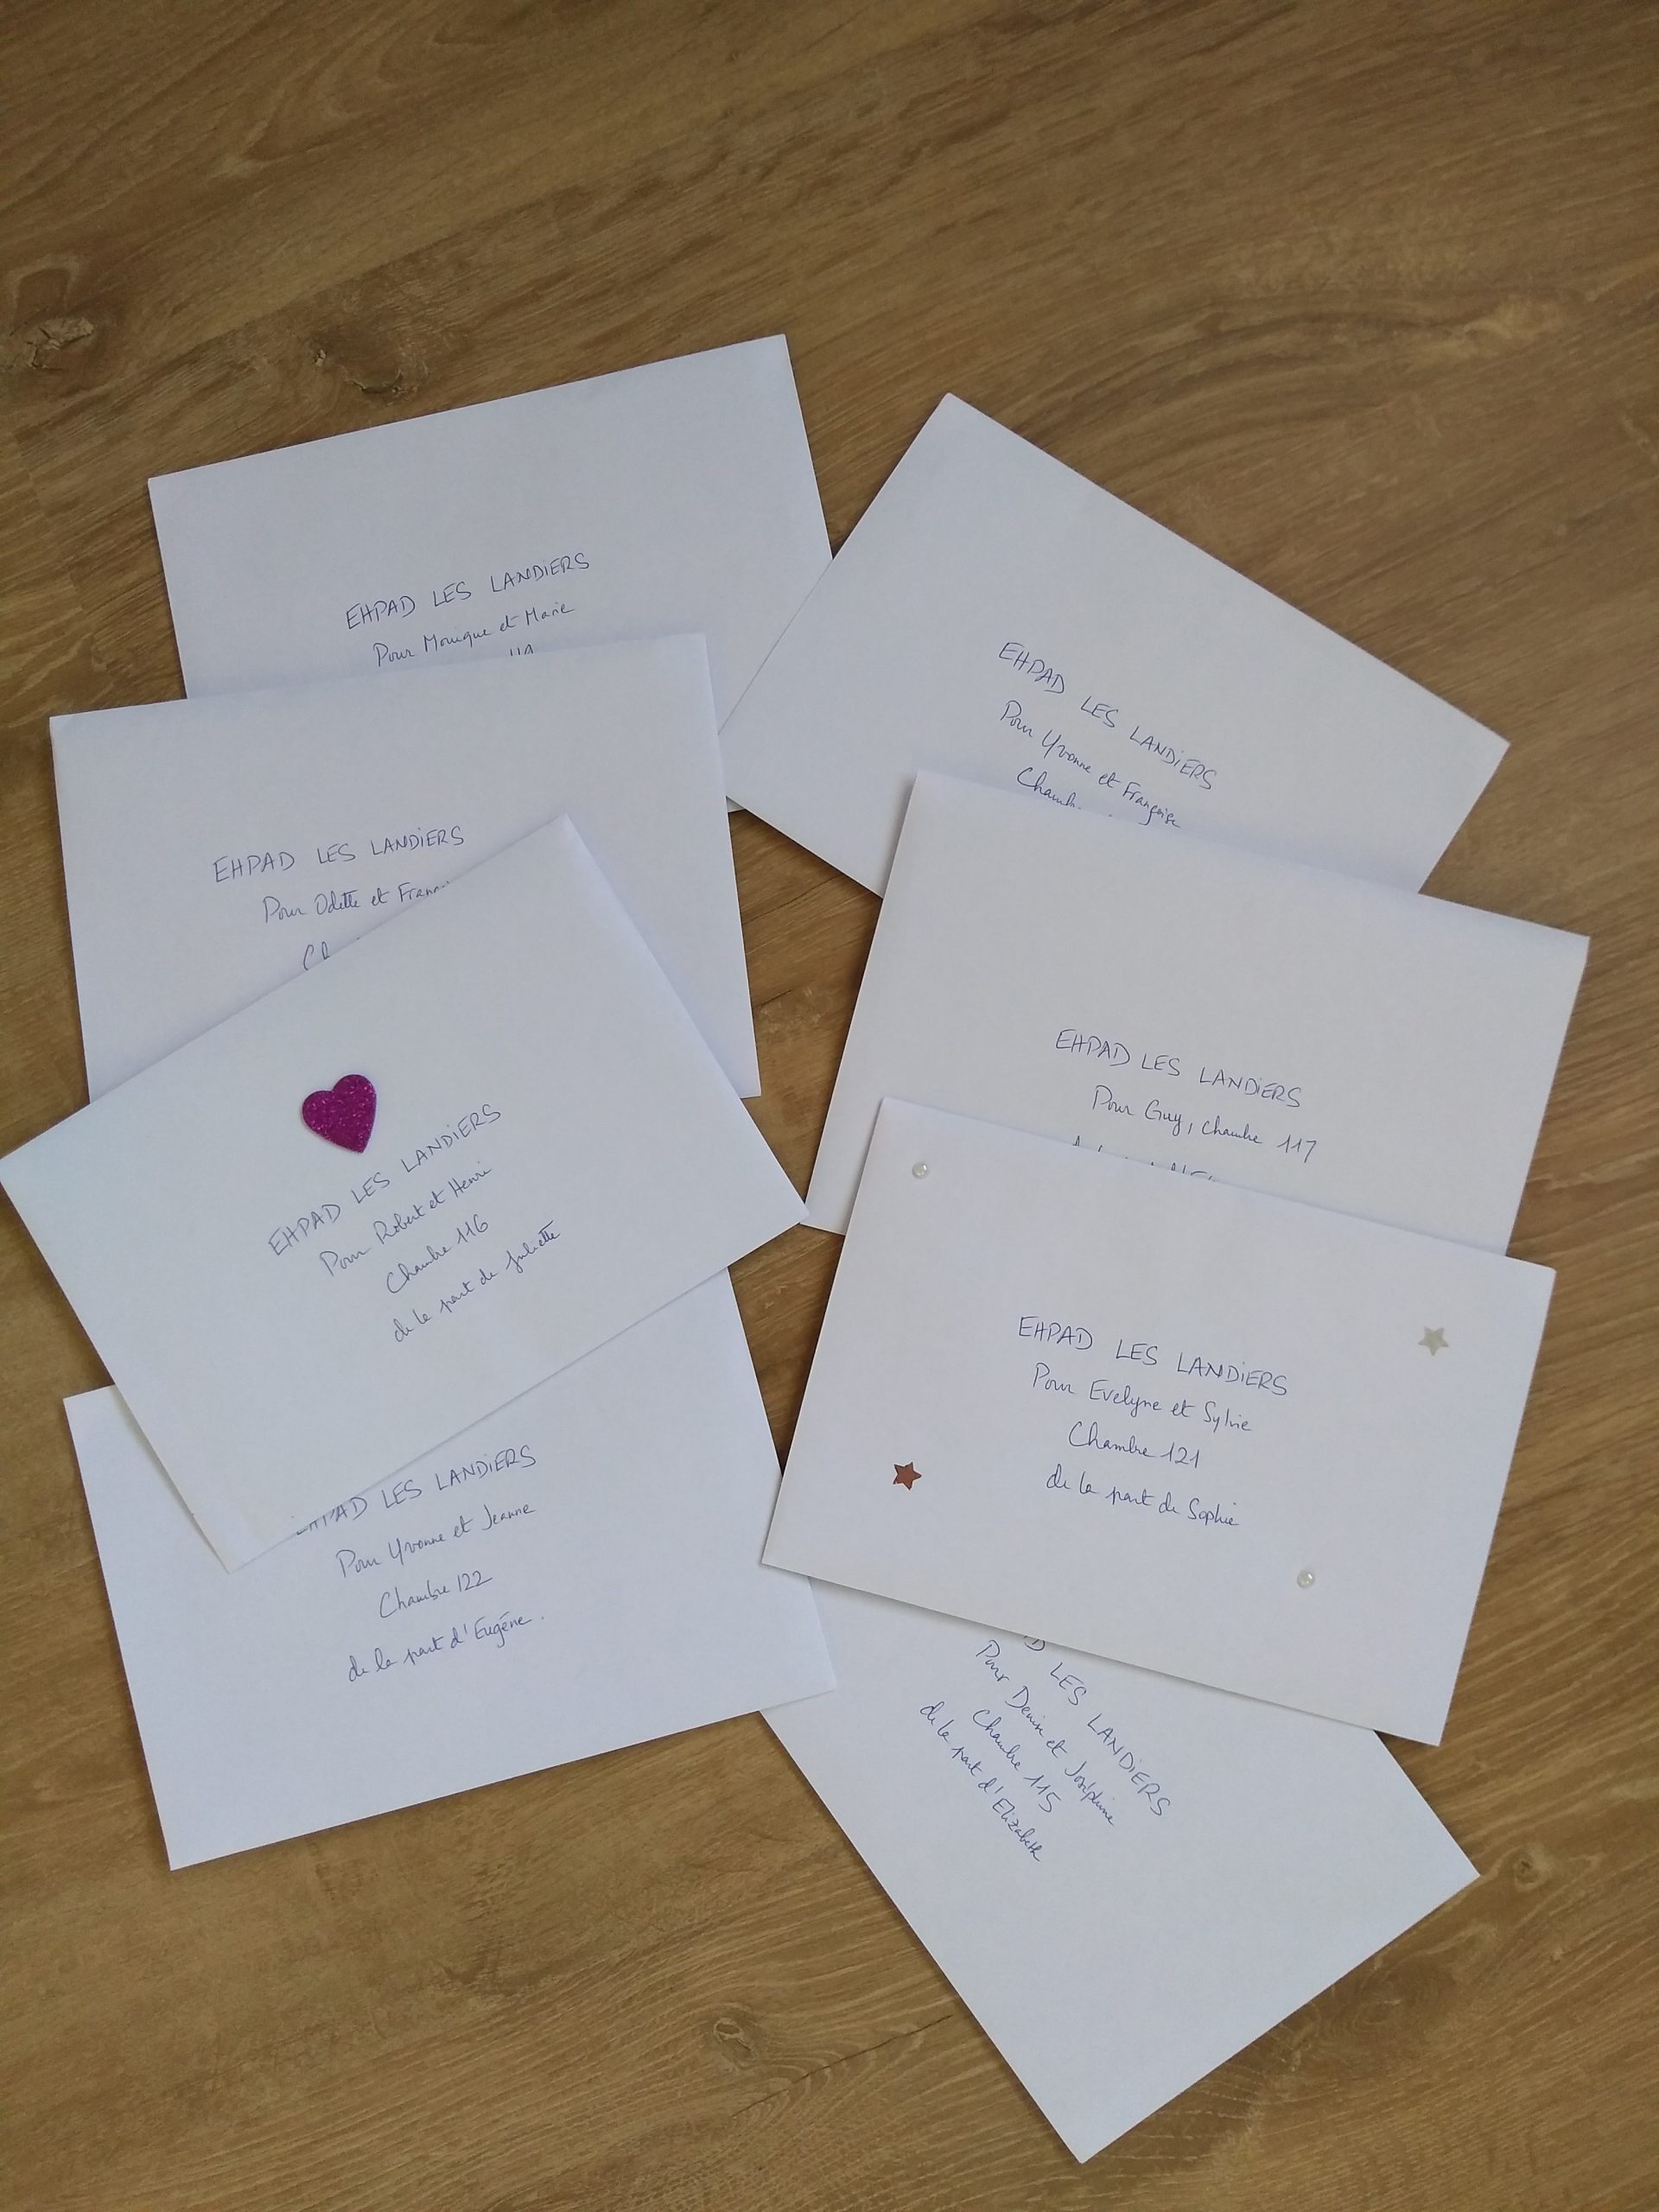 EHPAD LES LANDIERS
Pour Monique et Marie
EHPAD LES LANDIERS
Pour Yvonne et Françoise
EHPAD LES LANDIERS
Pour Odette et
EHPAD LES LANDIERS
Pour Guy, chambre 117
EHPAD LES LANDIERS
Pour Robert et Henri
Chambre 116
de la part de Juliette
EHPAD LES LANDIERS
Pour Evelyne et Sylvie
Chambre 121
de la part de Sophie
EHPAD LES LANDIERS
Pour Yvonne et Jeanne
Chambre 122
de la part d'Eugène.
LES LANDIERS
Pour Denise et Joséphine
Chambre 115
de la part d'Elizabeth